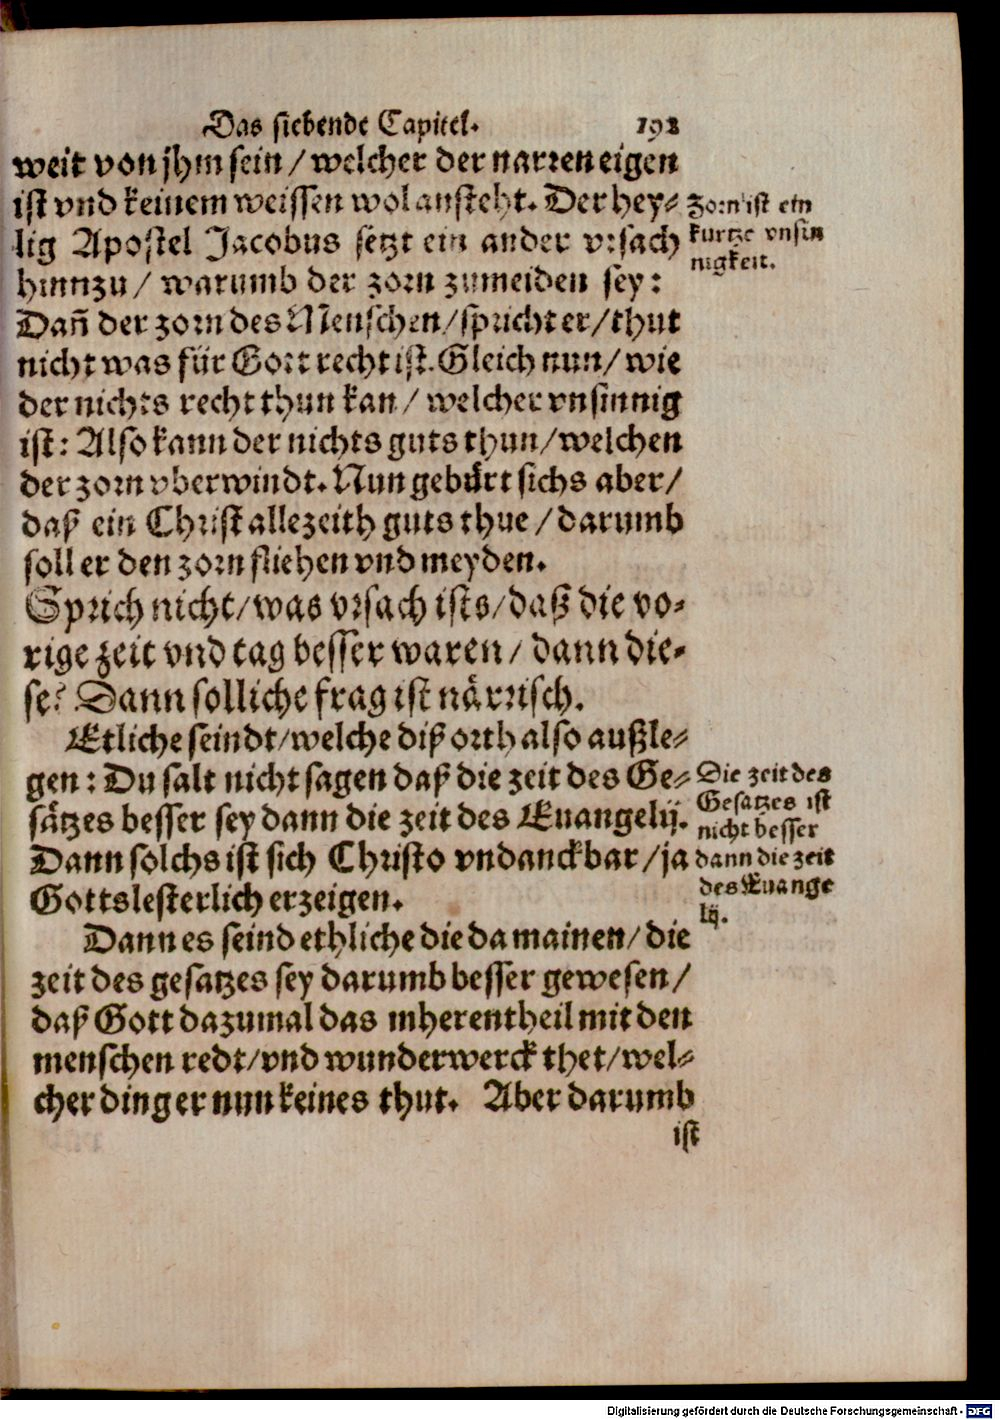 Das siebende Capitel. 192
weit von jhm sein / welcher der narren eigen
ist vnd keinem weissen wol ansteht. Der hey⸗
lig Apostel Jacobus setzt ein ander vrsach
hinnzu / warumb der zorn zumeiden sey:
Dañ der zorn des Menschen / spricht er / thut
nicht was für Gott recht ist. Gleich nun / wie
der nichts recht thun kan / welcher vnsinnig
ist: Also kann der nichts guts thun / welchen
der zorn vberwindt. Nun gebürt sichs aber /
daß ein Christ allezeith guts thue / darumb
soll er den zorn fliehen vnd meyden.
Zorn ist ein
kurtze vnsin
nigkeit.
Sprich nicht / was vrsach ists / daß die vo⸗
rige zeit vnd tag besser waren / dann die⸗
se? Dann solliche frag ist närrisch.
Etliche seindt / welche diß orth also außle⸗
gen: Du salt nicht sagen daß die zeit des Ge⸗
sätzes besser sey dann die zeit des Euangelij.
Dann solchs ist sich Christo vndanckbar / ja
Gottslesterlich erzeigen.
Die zeit des
Gesatzes ist
nicht besser
dann die zeit
des Euange
lij.
Dann es seind ethliche die da mainen / die
zeit des gesatzes sey darumb besser gewesen /
daß Gott dazumal das mherentheil mit den
menschen redt / vnd wunderwerck thet / wel⸗
cher ding er nun keines thut. Aber darumb
ist
Digitalisierung gefördert durch die Deutsche Forschungsgemeinschaft - DFG